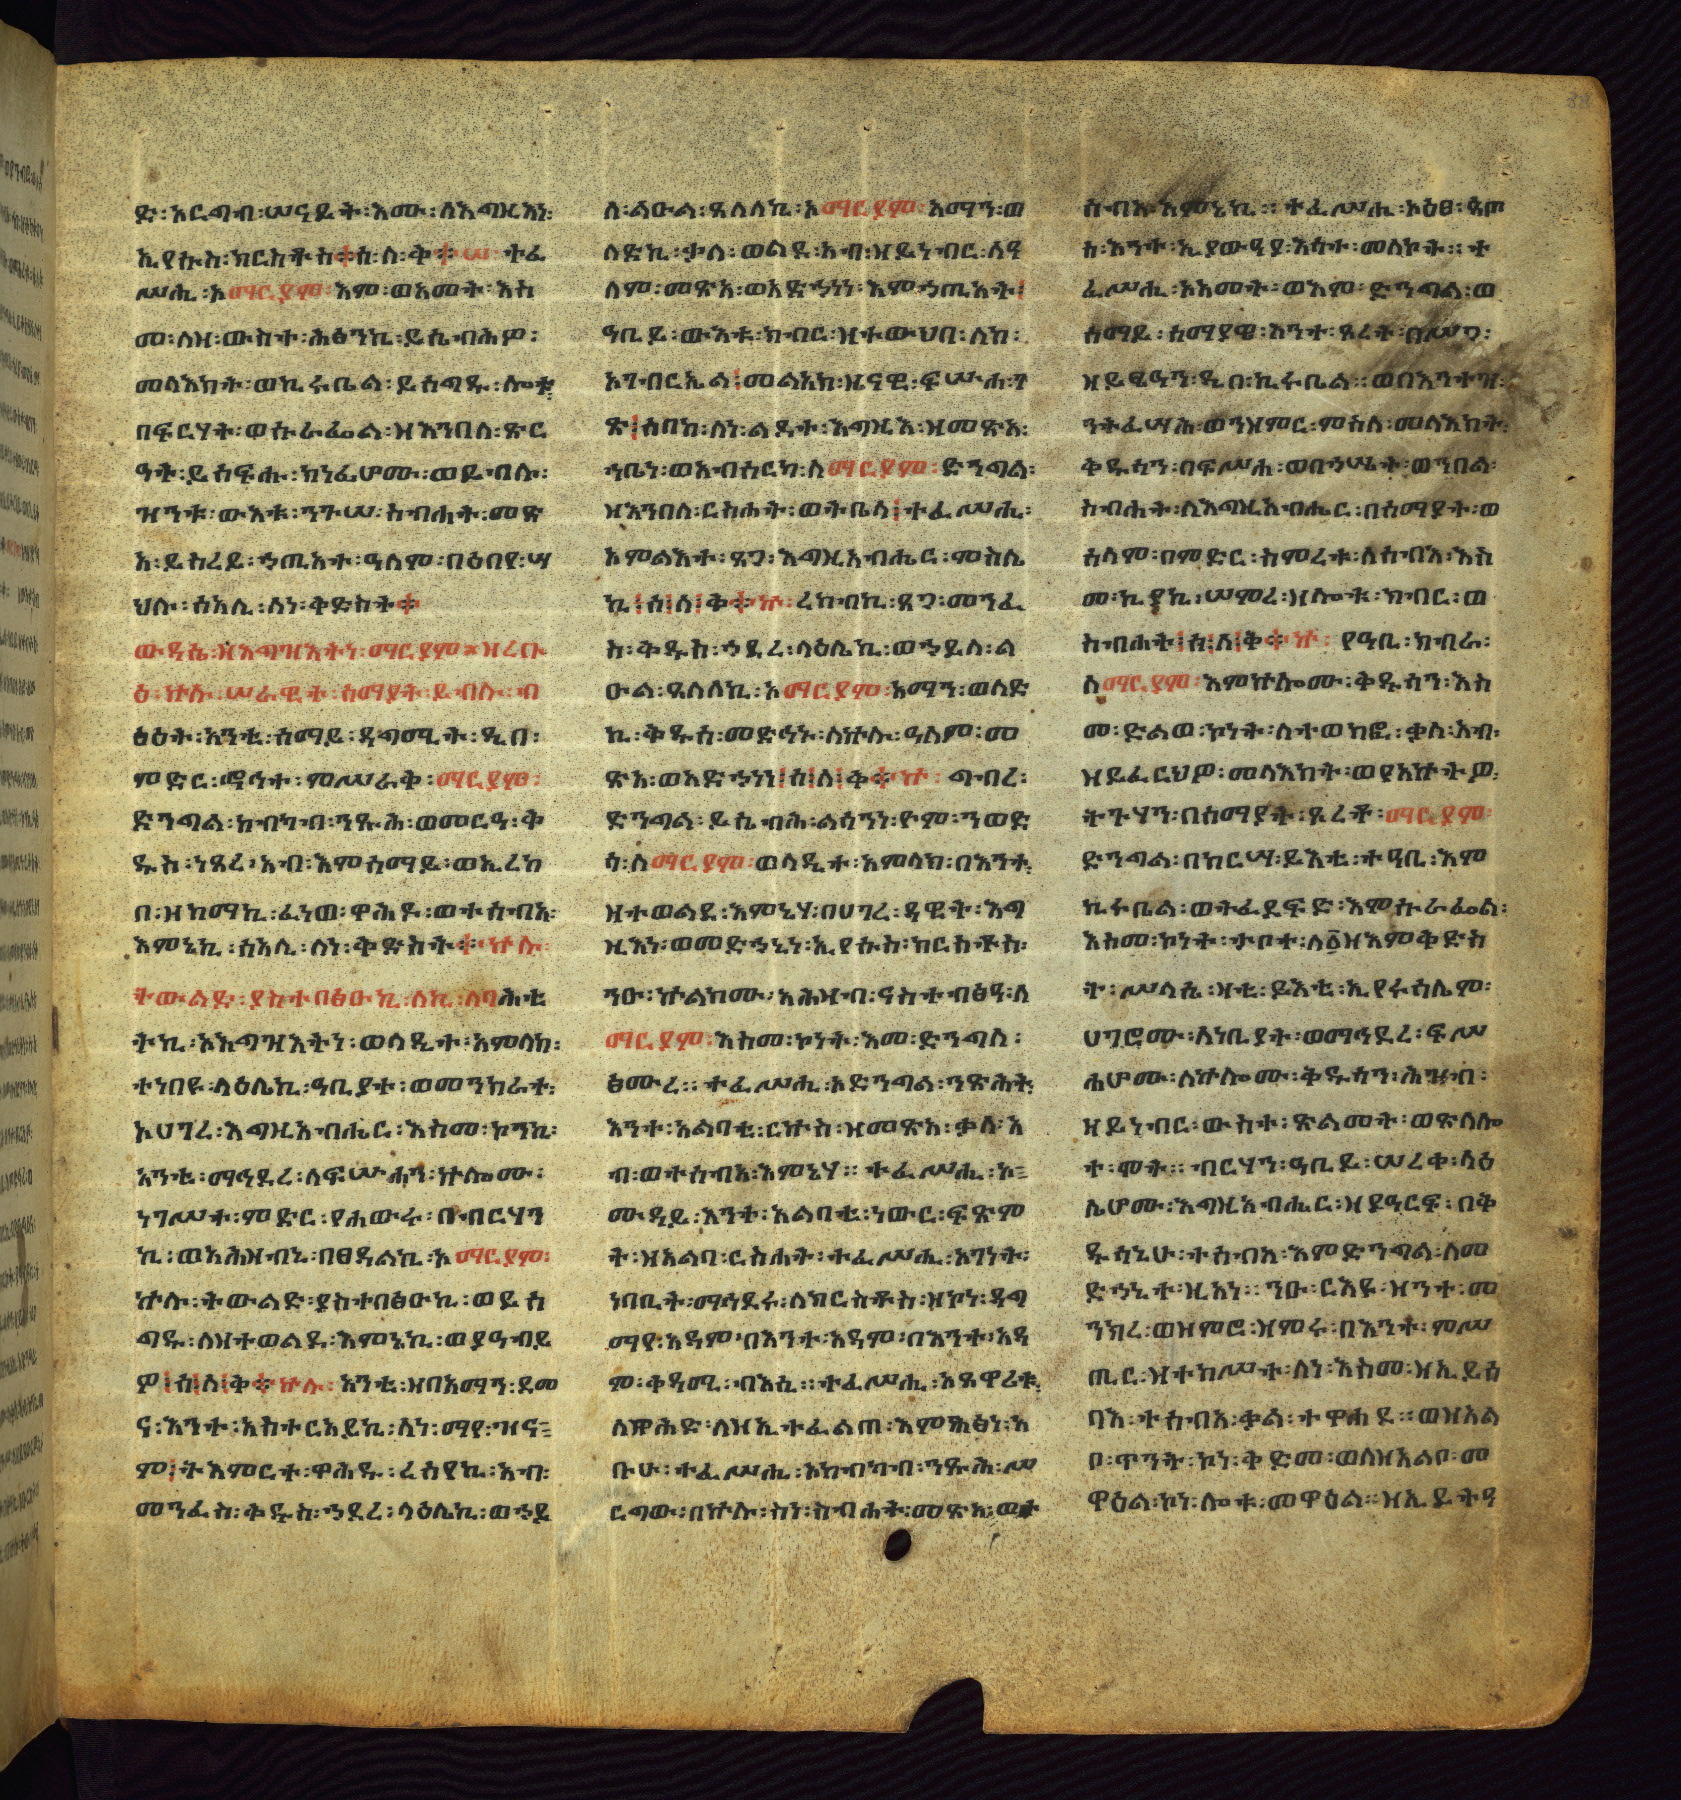 ድ፡አርጋብ፡ሠናይት፡እሙ፡ለእግዚእነ፡
ኢየሱስ፡ክርስቶስ፨ሰ፡ለ፡ቅ፨ሠ፡ተፈ
ሥሒ፡አማርያም፡እም፡ወአመት፡እስ
መ፡ለዝ፡ውስተ፡ሕፅንኪ፡ይሴብሕዎ፡
መላእክት፡ወኪሩቤል፡ይሰግዱ፡ሎቱ፡
በፍርሃት፡ወሱራፌል፡ዘእንበለ፡ጽር
ዓት፡ይሰፍሑ፡ክነፊሆሙ፡ወይብሉ፡
ዝንቱ፡ውእቱ፡ንጉሠ፡ስብሐት፡መጽ
አ፡ይስረይ፡ኃጢአተ፡ዓለም፡በዕበየ፡ሣ
ህሉ፡ሰአሊ፡ለነ፡ቅድስት፨
ውዳሴ፡ዘእግዝእትነ፡ማርያም፡ዘረቡ
ዕ፡ኵሉ፡ሠራዊተ፡ሰማያት፡ይብሉ፡ብ
ፅዕት፡አንቲ፡ሰማይ፡ዳግሚት፡ዲበ፡
ምድር፡ኆኅተ፡ምሥራቅ፡ማርያም፡
ድንግል፡ከብካብ፡ንጹሕ፡ወመርዓ፡ቅ
ዱስ፡ነጸረ፡አብ፡እምሰማይ፡ወኢረከ
በ፡ዘከማኪ፡ፈነወ፡ዋሕዶ፡ወተሰብአ፡
እምኔኪ፡ሰአሊ፡ለነ፡ቅድስት፨ኵሉ፡
ትውልድ፡ያስተበፅዑኪ፡ለኪ፡ለባሕቲ
ትኪ፡ኦእግዝእትነ፡ወላዲተ፡አምላክ፡
ተነበዩ፡ላዕሌኪ፡ዓቢያተ፡ወመንክራተ፡
ኦሀገረ፡እግዚአብሔር፡እስመ፡ኮንኪ፡
አንቲ፡ማኅደረ፡ለፍሡሐን፡ኵሎሙ፡
ነገሥተ፡ምድር፡የሐውሩ፡በብርሃን
ኪ፡ወአሕዛብኒ፡በፀዳልኪ፡አማርያም፡
ኵሉ፡ትውልድ፡ያስተበፅዑኪ፡ወይሰ
ግዱ፡ለዘተወልደ፡እምኔኪ፡ወያዓብይ
ዎ፡ሰ፡ለ፡ቅ፨ኵሉ፡አንቲ፡ዘበአማን፡ደመ
ና፡እንተ፡አስተርአይኪ፡ለነ፡ማየ፡ዝና፡
ም፡ትእምርተ፡ዋሕዱ፡ረሰየኪ፡አብ፡
መንፈስ፡ቅዱስ፡ኀደረ፡ላዕሌኪ፡ወኃይ
ለ፡ልዑል፡ጸለለኪ፡አማርያም፡አማን፡ወ
ለድኪ፡ቃለ፡ወልደ፡አብ፡ዘይነብር፡ለዓ
ለም፡መጽአ፡ወአድኀነነ፡እምኃጢአት፡
ዓቢይ፡ውእቱ፡ክብር፡ዘተውህበ፡ለከ፡
አገብርኤል፡መልአክ፡ዜናዊ፡ፍሡሐ፡ገ
ጽ፡ሰበከ፡ለነ፡ልደተ፡እግዚእ፡ዘመጽአ፡
ኀቤነ፡ወአብሰርካ፡ለማርያም፡ድንግል፡
ዘእንበለ፡ርስሐት፡ወትቤላ፡ተፈሥሒ፡
አምልእተ፡ጸጋ፡እግዚአብሔር፡ምስሌ
ኪ፡ሰ፡ለ፡ቅ፨ኵ፡ረከብኪ፡ጸጋ፡መንፈ
ስ፡ቅዱስ፡ኃደረ፡ላዕሌኪ፡ወኃይለ፡ል
ዑል፡ጸለለኪ፡አማርያም፡አማን፡ወለድ
ኪ፡ቅዱሰ፡መድኃኔ፡ለኵሉ፡ዓለም፡መ
ጽአ፡ወአድኀነነ፡ሰ፡ለ፡ቅ፨ኵ፡ግብረ፡
ድንግል፡ይሴብሕ፡ልሳንነ፡ዮም፡ንወድ
ሳ፡ለማርያም፡ወላዲተ፡አምላክ፡በእንተ፡
ዘተወልደ፡እምኔሃ፡በሀገረ፡ዳዊት፡እግ
ዚእነ፡ወመድኃኒነ፡ኢየሱስ፡ክርስቶስ፡
ንዑ፡ኵልክሙ፡አሕዛብ፡ናስተብፅዓ፡ለ
ማርያም፡እስመ፡ኮነት፡እመ፡ድንግለ፡
ፅሙረ፡፡ተፈሥሒ፡አድንግል፡ንጽሕት፡
እንተ፡አልባቲ፡ርኵስ፡ዘመጽአ፡ቃለ፡አ
ብ፡ወተሰብአ፡እምኔሃ፡፡ተፈሥሒ፡ኦ፡
ሙዳይ፡እንተ፡አልባቲ፡ነውር፡ፍጽም
ት፡ዘአልባ፡ርስሐት፡ተፈሥሒ፡አገነት፡
ነባቢት፡ማኅደሩ፡ለክርስቶስ፡ዘኮነ፡ዳግ
ማየ፡አዳም፡በእንተ፡አዳም፡በእንተ፡አዳ
ም፡ቀዳሚ፡ብእሲ፡፡ተፈሥሒ፡አጸዋሪቱ፡
ለዋሕድ፡ለዘኢተፈልጠ፡እምሕፅነ፡አ
ቡሁ፡ተፈሥሒ፡አከብካብ፡ንጹሕ፡ሥ
ርግው፡በኵሉ፡ስነ፡ስብሐት፡መጽአ፡ወተ
ሰብአ፡እምኔኪ፡፡ተፈሥሒ፡ኦዕፀ፡ጳጦ
ስ፡እንተ፡ኢያውዓያ፡እሳተ፡መለኮት፡፡ተ
ፈሥሒ፡ኦአመት፡ወእም፡ድንግል፡ወ
ሰማይ፡ሰማያዊ፡እንተ፡ጾረት፡በሥጋ፡
ዘይፄዓን፡ዲበ፡ኪሩቤል፡፡ወበእንተዝ፡
ንትፈሣሕ፡ወንዘምር፡ምስለ፡መላእክት፡
ቅዱሳን፡በፍሥሐ፡ወበኃሤት፡ወንበል፡
ስብሐት፡ለእግዚአብሔር፡በሰማያት፡ወ
ሰላም፡በምድር፡ስምረቱ፡ለሰብእ፡እስ
መ፡ኪያኪ፡ሠምረ፡ዘሎቱ፡ክብር፡ወ
ስብሐት፡ሰ፡ለ፡ቅ፨ኵ፡የዓቢ፡ክብራ፡
ለማርያም፡እምኵሎሙ፡ቅዱሳን፡እስ
መ፡ድልወ፡ኮነት፡ለተወክፎ፡ቃለ፡አብ፡
ዘይፈርህዎ፡መላእክት፡ወየአኵትዎ፡
ትጉሃን፡በሰማያት፡ጾረቶ፡ማርያም፡
ድንግል፡በከርሣ፡ይእቲ፡ተዓቢ፡እም
ኪሩቤል፡ወትፈደፍድ፡እምሱራፌል፡
እስመ፡ኮነት፡ታቦተ፡ለ፩ዘእምቅድስ
ት፡ሥላሴ፡ዛቲ፡ይእቲ፡ኢየሩሳሌም፡
ሀገሮሙ፡ለነቢያት፡ወማኅደረ፡ፍሥ
ሐሆሙ፡ለኵሎሙ፡ቅዱሳን፡ሕዝብ፡
ዘይነብር፡ውስተ፡ጽልመት፡ወጽላሎ
ተ፡ሞት፡፡ብርሃን፡ዓቢይ፡ሠረቀ፡ላዕ
ሌሆሙ፡እግዚአብሔር፡ዘያዓርፍ፡በቅ
ዱሳኒሁ፡ተሰብአ፡እምድንግል፡ለመ
ድኃኒተ፡ዚአነ፡፡ንዑ፡ርእዩ፡ዘንተ፡መ
ንክረ፡ወዘምሮ፡ዘምሩ፡በእንተ፡ምሥ
ጢር፡ዘተከሥተ፡ለነ፡እስመ፡ዘኢይሰ
ባእ፡ተሰብአ፡ቃል፡ተዋሐደ፡፡ወዘአል
ቦ፡ጥንት፡ኮነ፡ቅድመ፡ወለዘአልቦ፡መ
ዋዕል፡ኮነ፡ሎቱ፡መዋዕል፡፡ዘኢይትዓ